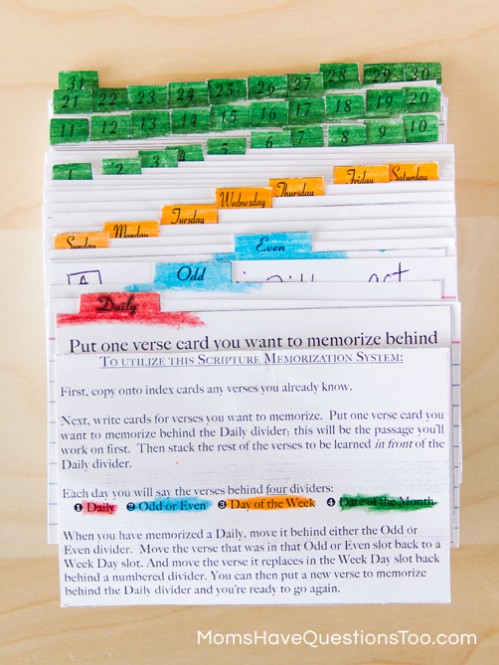 31 28 29 30
21 22 23 24 25 26 27
11 12 13 14 15 16 17 18 19 20
1 2 3 4 5 6 7 8 9 10
Sunday Monday Tuesday Wednesday Thursday Friday Saturday
Even
Odd
A
Daily
Put one verse card you want to memorize behind
TO UTILIZE THIS SCRIPTURE MEMORIZATION SYSTEM:
First, copy onto index cards any verses you already know.
Next, write cards for verses you want to memorize. Put one verse card you
want to memorize behind the Daily divider; this will be the passage you'll
work on first. Then stack the rest of the verses to be learned in front of the
Daily divider.
Each day you will say the verses behind four dividers:
❶ Daily ❷ Odd or Even ❸ Day of the Week ❹ Date of the Month
When you have memorized a Daily, move it behind either the Odd or
Even divider. Move the verse that was in that Odd or Even slot back to a
Week Day slot. And move the verse it replaces in the Week Day slot back
behind a numbered divider. You can then put a new verse to memorize
behind the Daily divider and you're ready to go again.
MomsHaveQuestionsToo.com